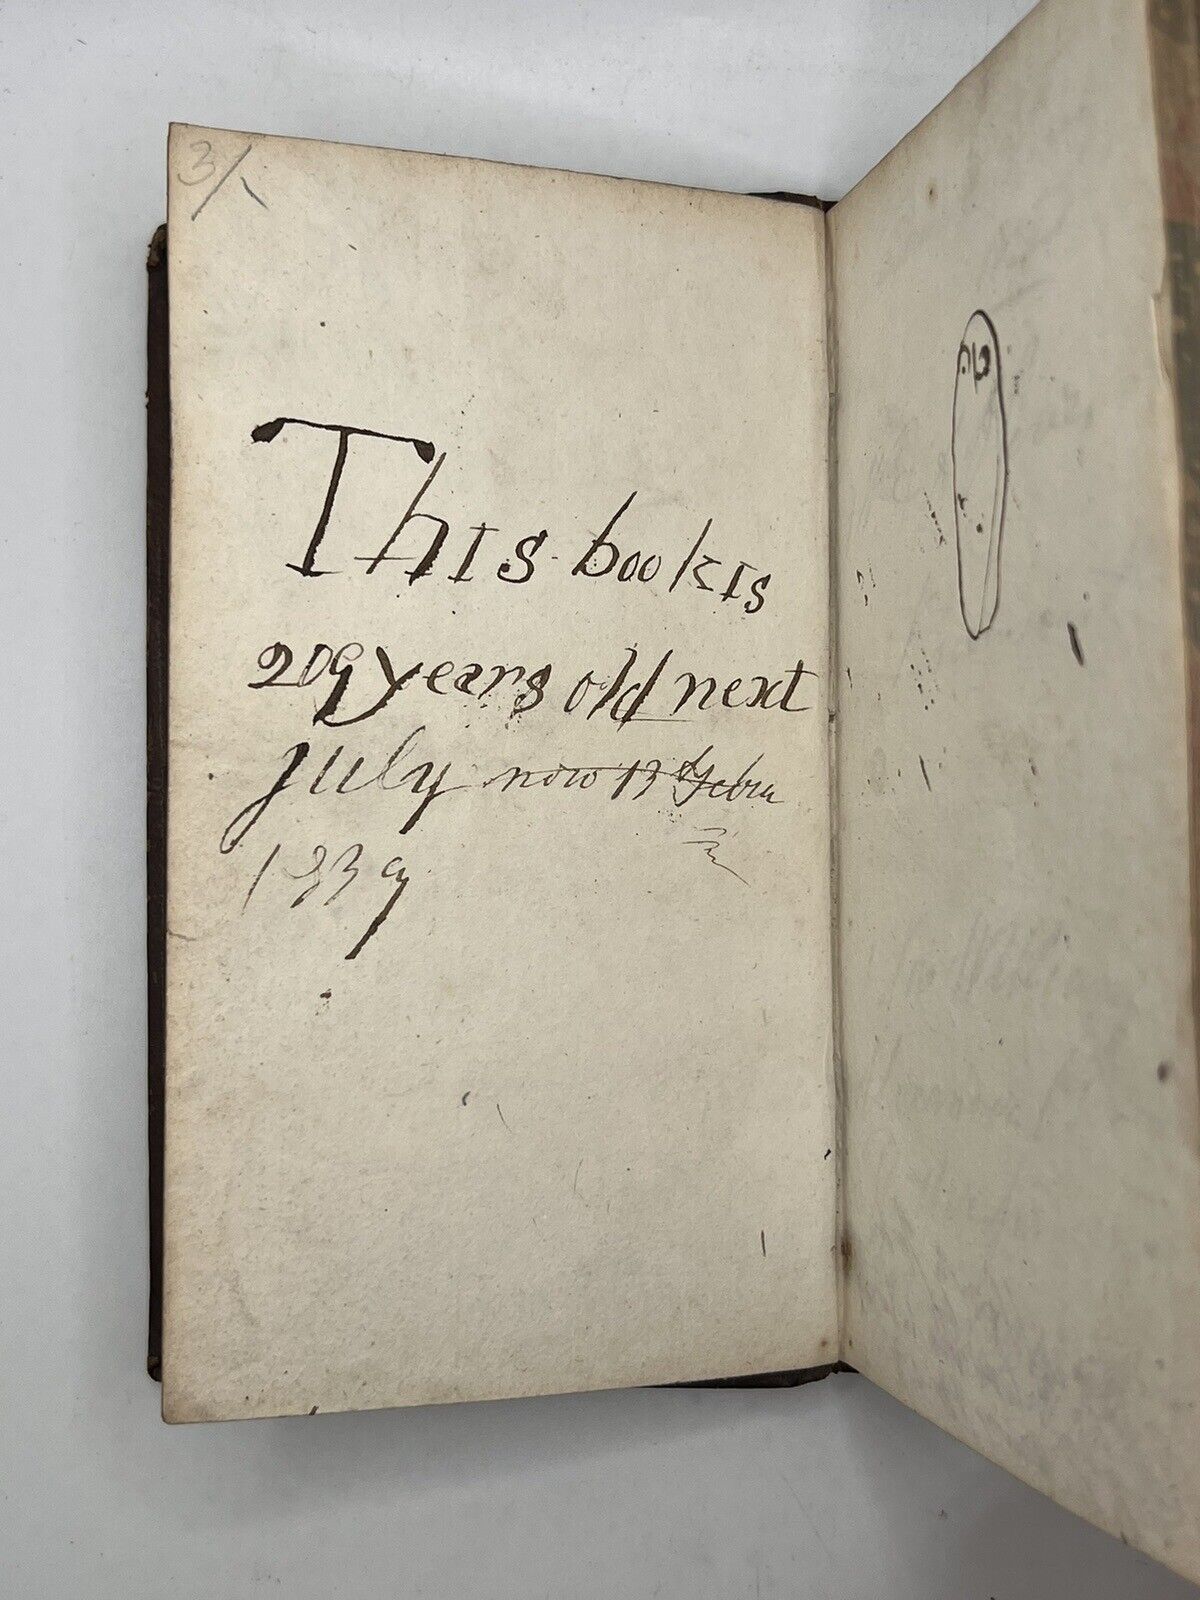 3/
This book is
209 years old next
july now 13 Febru
1839